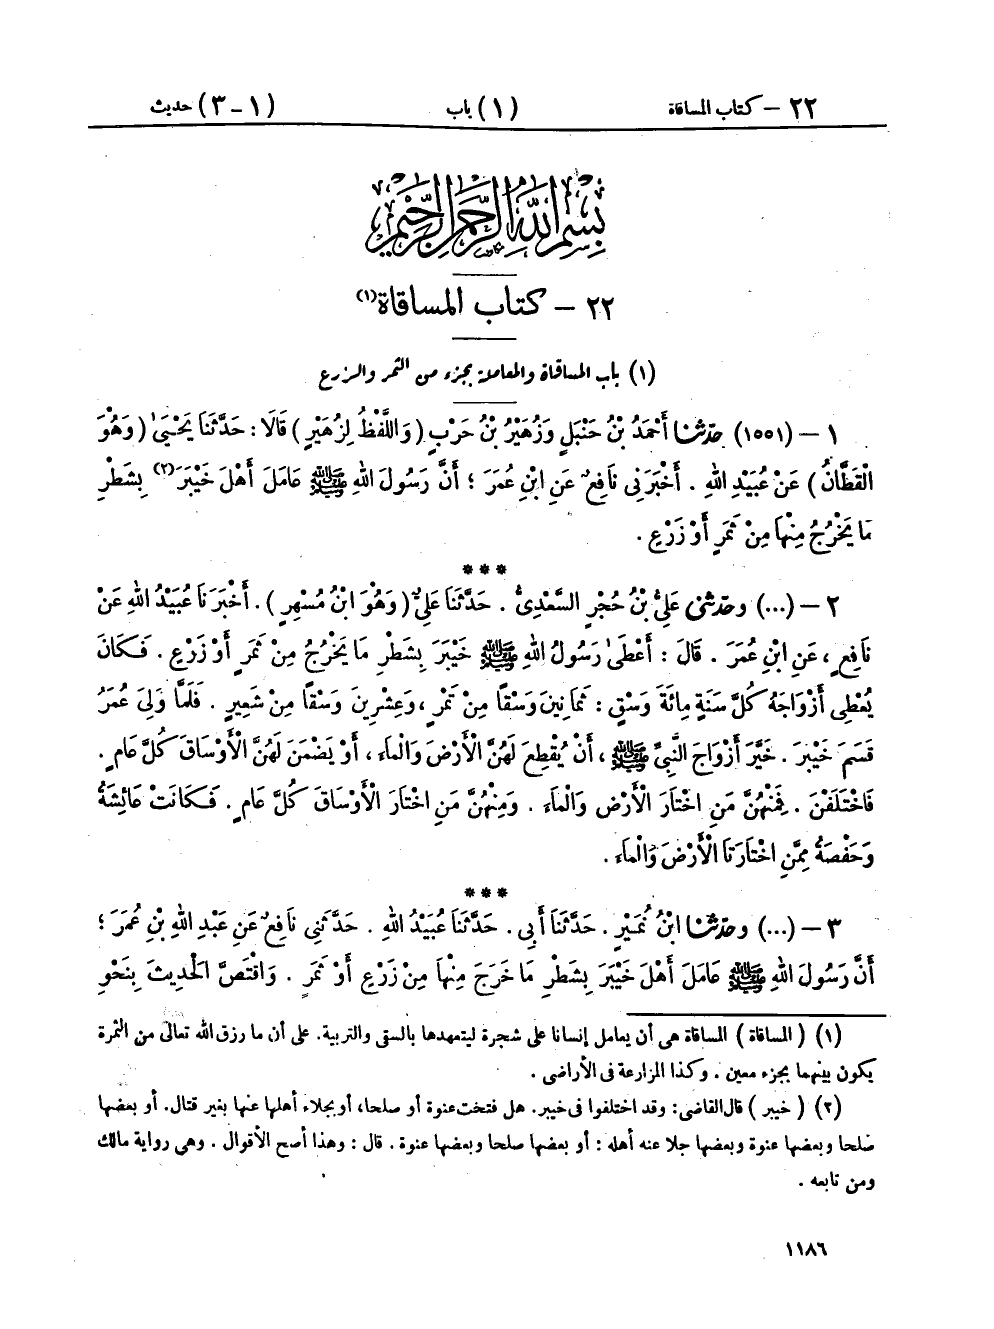 ٢٢ – كتاب المساقاة (١) باب (١ – ٣) حديث
بِسْمِ اللهِ الرَّحْمٰنِ الرَّحِيمِ
٢٢ – كتاب المساقاة(١)
(١) باب المساقاة والمعاملة بجزء من الثمر والزرع
١ – (١٥٥١) حَدَّثَنَا أَحْمَدُ بْنُ حَنْبَلٍ وَزُهَيْرُ بْنُ حَرْبٍ (وَاللَّفْظُ لِزُهَيْرٍ) قَالَا: حَدَّثَنَا يَحْيَىٰ (وَهُوَ
الْقَطَّانُ) عَنْ عُبَيْدِ اللهِ . أَخْبَرَنِى نَافِعٌ عَنِ ابْنِ عُمَرَ ؛ أَنَّ رَسُولَ اللهِ ﷺ عَامَلَ أَهْلَ خَيْبَرَ(٢) بِشَطْرِ
مَا يَخْرُجُ مِنْهَا مِنْ ثَمَرٍ أَوْ زَرْعٍ .
***
٢ – (...) وحَدَّثَنِى عَلِىُّ بْنُ حُجْرٍ السَّعْدِىُّ . حَدَّثَنَا عَلِىٌّ (وَهُوَ ابْنُ مُسْهِرٍ) . أَخْبَرَنَا عُبَيْدُ اللهِ عَنْ
نَافِعٍ ، عَنِ ابْنِ عُمَرَ . قَالَ : أَعْطَىٰ رَسُولُ اللهِ ﷺ خَيْبَرَ بِشَطْرِ مَا يَخْرُجُ مِنْ ثَمَرٍ أَوْ زَرْعٍ . فَكَانَ
يُعْطِى أَزْوَاجَهُ كُلَّ سَنَةٍ مِائَةَ وَسْقٍ : ثَمَانِينَ وَسْقًا مِنْ تَمْرٍ ، وَعِشْرِينَ وَسْقًا مِنْ شَعِيرٍ . فَلَمَّا وَلِىَ عُمَرُ
قَسَمَ خَيْبَرَ . خَيَّرَ أَزْوَاجَ النَّبِىِّ ﷺ ، أَنْ يُقْطِعَ لَهُنَّ الْأَرْضَ وَالْمَاءَ ، أَوْ يَضْمَنَ لَهُنَّ الْأَوْسَاقَ كُلَّ عَامٍ .
فَاخْتَلَفْنَ . فَمِنْهُنَّ مَنِ اخْتَارَ الْأَرْضَ وَالْمَاءَ . وَمِنْهُنَّ مَنِ اخْتَارَ الْأَوْسَاقَ كُلَّ عَامٍ . فَكَانَتْ عَائِشَةُ
وَحَفْصَةُ مِمَّنِ اخْتَارَتَا الْأَرْضَ وَالْمَاءَ .
***
٣ – (...) وحَدَّثَنَا ابْنُ نُمَيْرٍ . حَدَّثَنَا أَبِى . حَدَّثَنَا عُبَيْدُ اللهِ . حَدَّثَنِى نَافِعٌ عَنْ عَبْدِ اللهِ بْنِ عُمَرَ ؛
أَنَّ رَسُولَ اللهِ ﷺ عَامَلَ أَهْلَ خَيْبَرَ بِشَطْرِ مَا خَرَجَ مِنْهَا مِنْ زَرْعٍ أَوْ ثَمَرٍ . وَاقْتَصَّ الْحَدِيثَ بِنَحْوِ
(١) (المساقاة) المساقاة هى أن يعامل إنسانا على شجرة ليتعهدها بالسقى والتربية. على أن ما رزق الله تعالى من الثمرة
يكون بينهما بجزء معين . وكذا المزارعة فى الأراضى .
(٢) (خيبر) قال القاضى: وقد اختلفوا فى خيبر. هل فتحت عنوة أو صلحا، أو بجلاء أهلها عنها بغير قتال. أو بعضها
صلحا وبعضها عنوة وبعضها جلا عنه أهله : أو بعضها صلحا وبعضها عنوة . قال : وهذا أصح الأقوال . وهى رواية مالك
ومن تابعه .
١١٨٦